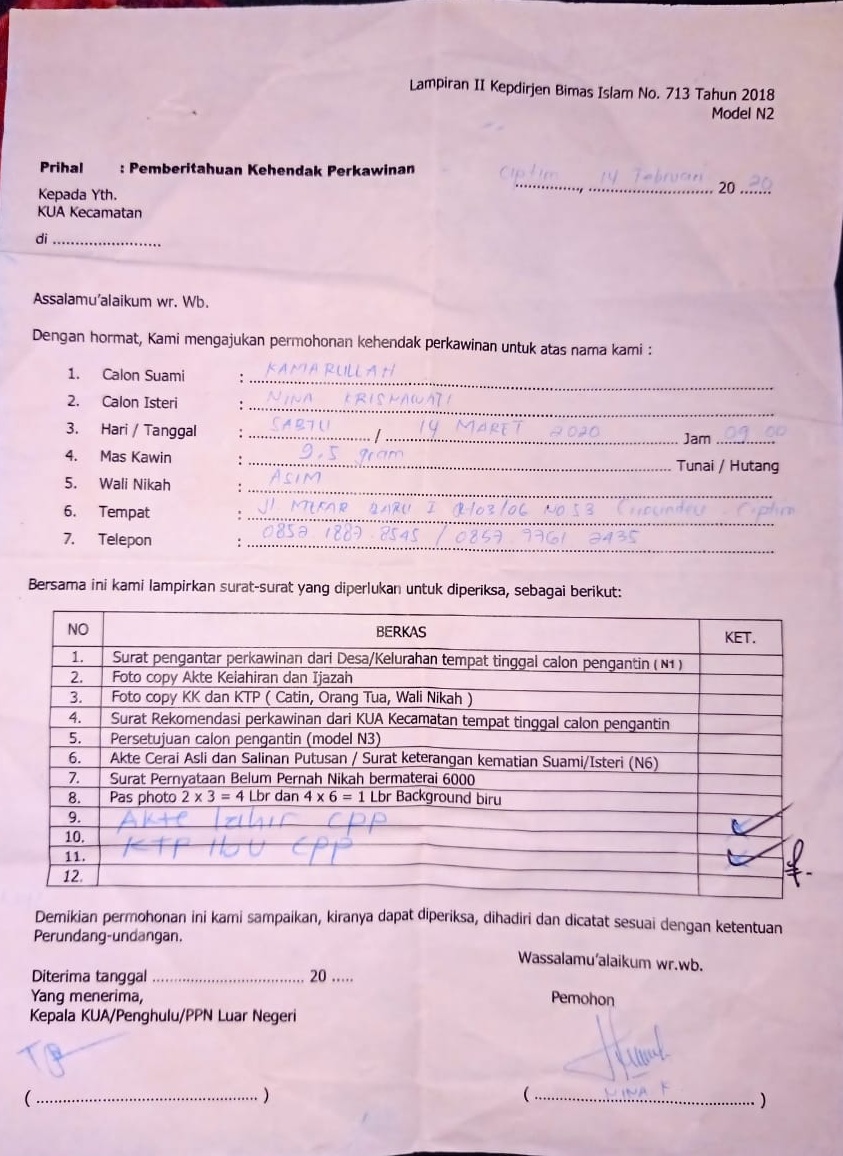 Lampiran II Kepdirjen Bimas Islam No. 713 Tahun 2018
Model N2
Prihal : Pemberitahuan Kehendak Perkawinan
Ciptim, 14 Februari 20 20
Kepada Yth.
KUA Kecamatan
di ........................
Assalamu'alaikum wr. Wb.
Dengan hormat, Kami mengajukan permohonan kehendak perkawinan untuk atas nama kami :
1. Calon Suami : KAMARULLAH
2. Calon Isteri : NINA KRISMAWATI
3. Hari / Tanggal : SABTU / 14 MARET 2020 Jam 09 00
4. Mas Kawin : 9,5 gram Tunai / Hutang
5. Wali Nikah : ASIM
6. Tempat : Jl BARU I /03/06 NO 53 Ciptim
7. Telepon : 0852 1887 8545 / 0857 9961 2435
Bersama ini kami lampirkan surat-surat yang diperlukan untuk diperiksa, sebagai berikut:
NO BERKAS KET.
1. Surat pengantar perkawinan dari Desa/Kelurahan tempat tinggal calon pengantin ( N1 )
2. Foto copy Akte Kelahiran dan Ijazah
3. Foto copy KK dan KTP ( Catin, Orang Tua, Wali Nikah )
4. Surat Rekomendasi perkawinan dari KUA Kecamatan tempat tinggal calon pengantin
5. Persetujuan calon pengantin (model N3)
6. Akte Cerai Asli dan Salinan Putusan / Surat keterangan kematian Suami/Isteri (N6)
7. Surat Pernyataan Belum Pernah Nikah bermaterai 6000
8. Pas photo 2 x 3 = 4 Lbr dan 4 x 6 = 1 Lbr Background biru
9. Akte lahir CPP
10. KTP Ibu CPP
11.
12.
Demikian permohonan ini kami sampaikan, kiranya dapat diperiksa, dihadiri dan dicatat sesuai dengan ketentuan
Perundang-undangan.
Wassalamu'alaikum wr.wb.
Diterima tanggal .................................. 20 .....
Yang menerima,
Kepala KUA/Penghulu/PPN Luar Negeri
Pemohon
( ................................................ )
( NINA K )